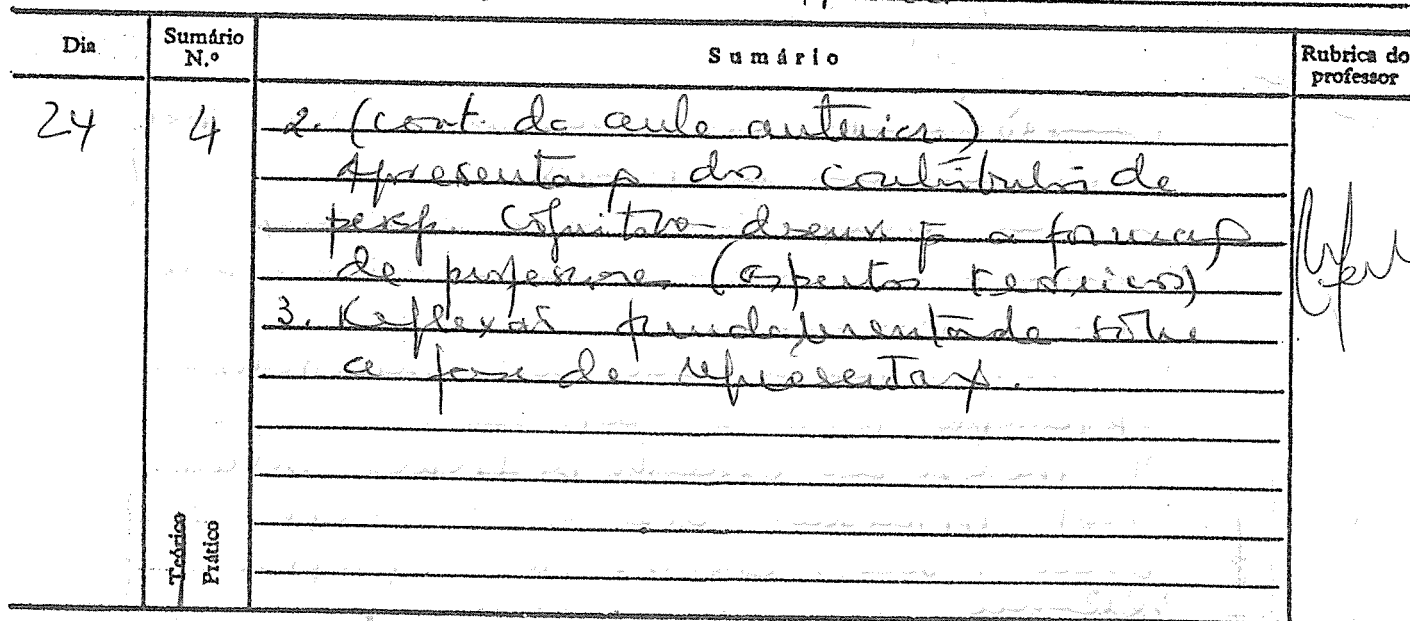 Dia
Sumário N.º
Sumário
Rubrica do professor
24
4
2. (cont. da aula anterior)
Apresentaç dos contributos da
persp. Cognitivo- p a formaç
de professores (aspectos teóricos)
3. Reflexão fundamentada sobre
a fase de representaç.
Teórico
Prático